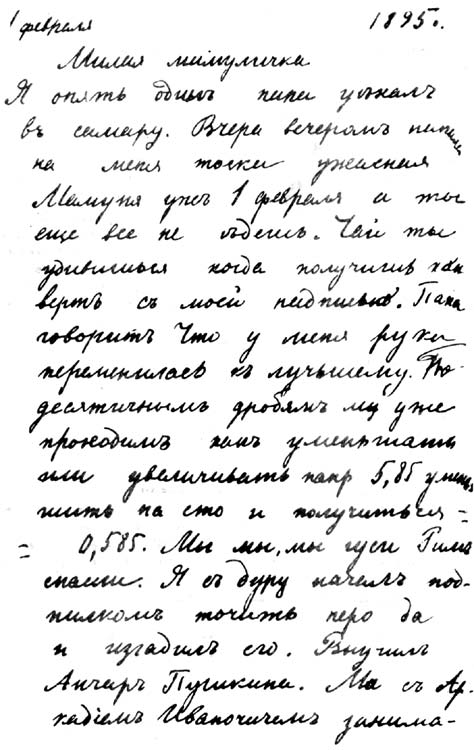 1 февраля 1895 г.
Милая мимумичка
Я опять одинъ папа уѣхалъ
въ самару. Вчера вечеромъ напала
на меня тоска ужасная
Мамуня ужъ 1 февраля а ты
еще все не ѣдешь. Чай ты
удивишься когда получишь кон
вертъ съ моей надписью. Папа
говоритъ что у меня рука
переменилась къ лучьшему. По-
десятичнымъ дробямъ мы уже
проходимъ какъ уменьшать
или увеличивать напр 5,85 умень
шить на сто и получиться =
= 0,585. Мы мы, мы гуси Римъ
спасли. Я съ дуру началъ под-
пилкомъ точить перо да
и изгадилъ его. Выучилъ
Анчаръ Пушкина. Мы съ Ар-
кадіемъ Ивановичемъ занима-